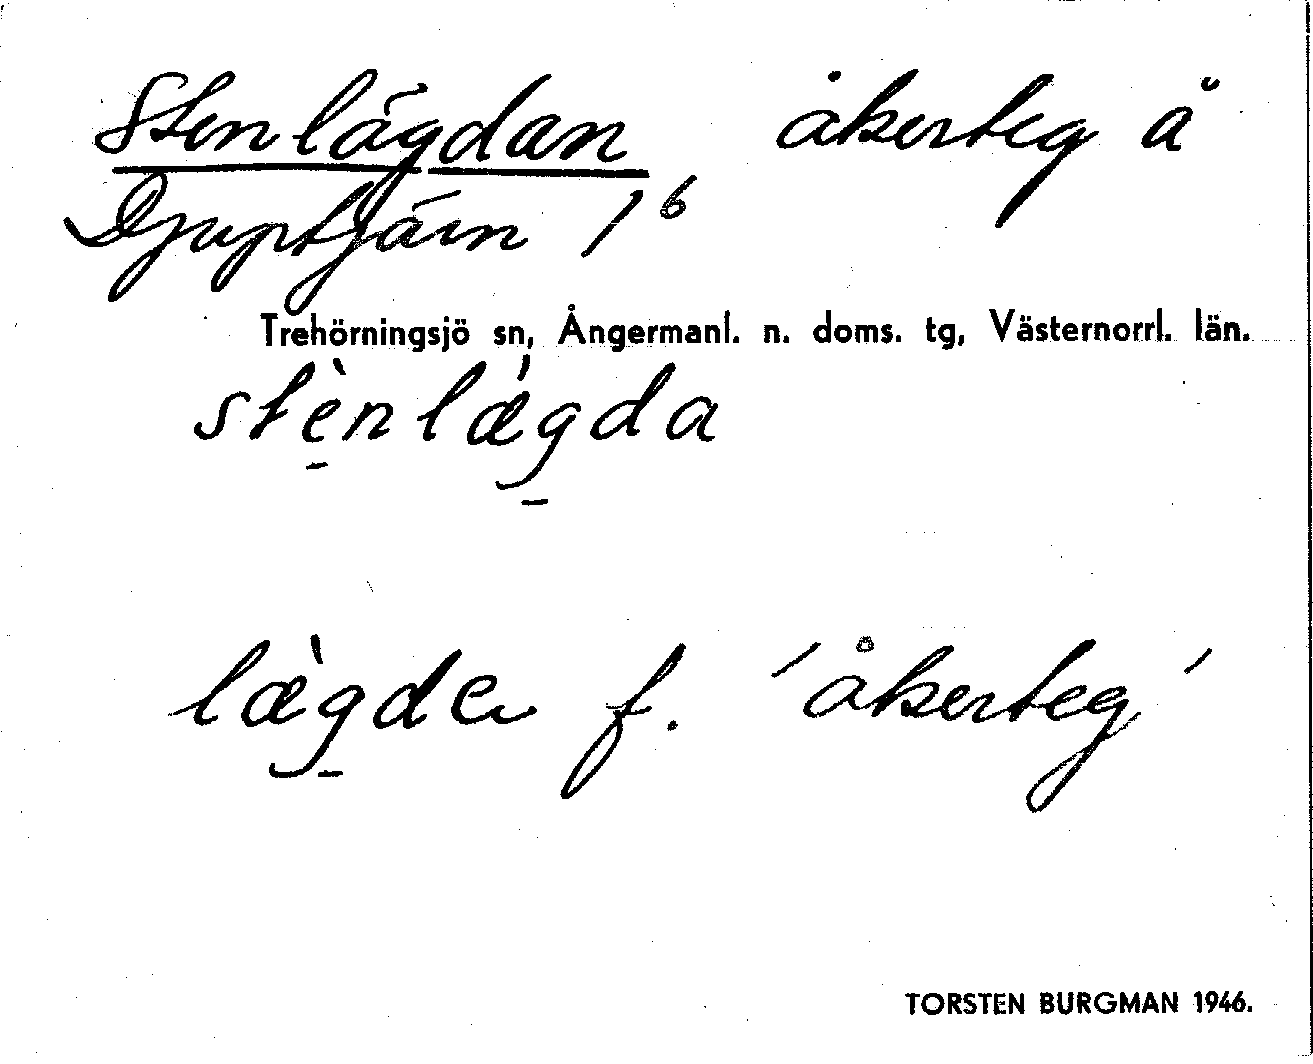 Stenlägdan åkerteg å
Djuptjärn 1⁶
Trehörningsjö sn, Ångermanl. n. doms. tg, Västernorrl. län.
stè̠nlæ̀g̠da
læ̀g̠da f. 'åkerteg'
TORSTEN BURGMAN 1946.